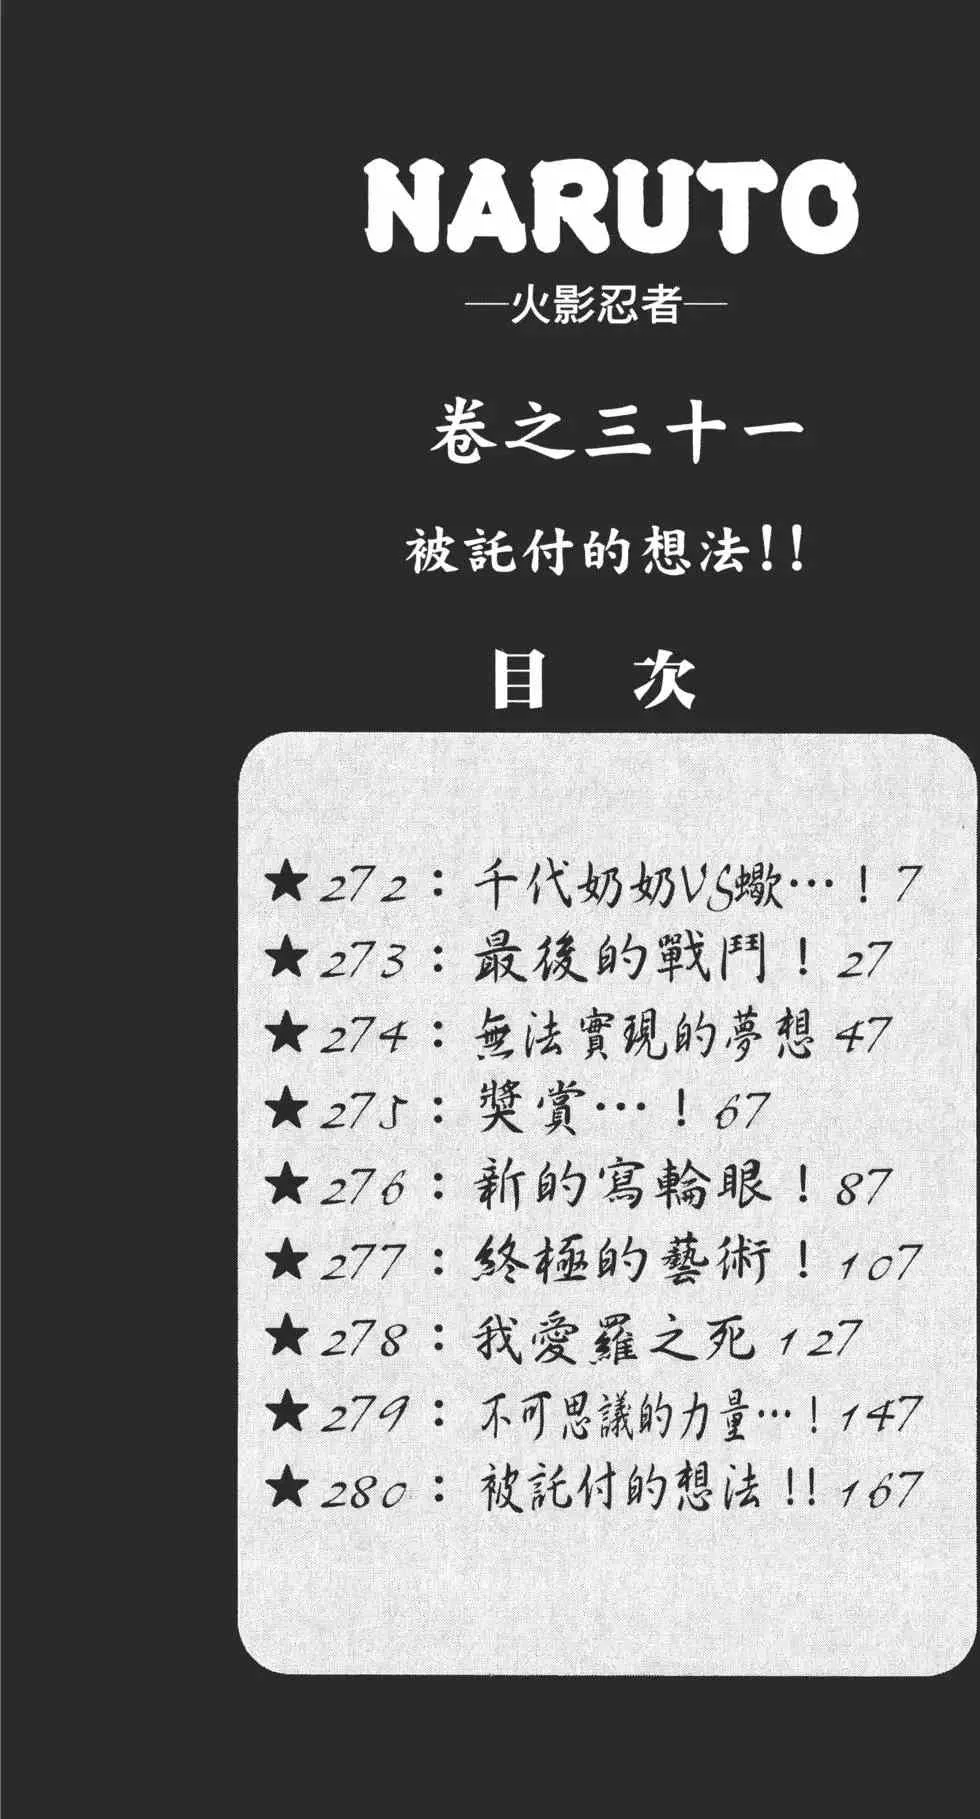 NARUTO
—火影忍者—
卷之三十一
被託付的想法!!
目 次
★272：千代奶奶VS蠍…！7
★273：最後的戰鬥！27
★274：無法實現的夢想 47
★275：獎賞…！67
★276：新的寫輪眼！87
★277：終極的藝術！107
★278：我愛羅之死 127
★279：不可思議的力量…！147
★280：被託付的想法!! 167